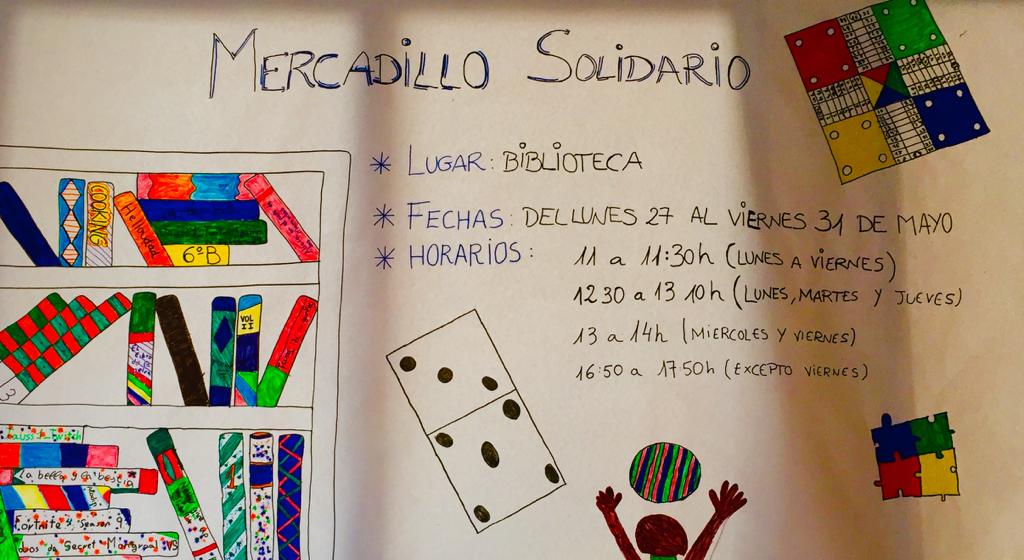 MERCADILLO SOLIDARIO
* LUGAR: BIBLIOTECA
* FECHAS: DEL LUNES 27 AL VIERNES 31 DE MAYO
* HORARIOS: 11 a 11:30h (LUNES A VIERNES)
12 30 a 13 10h (LUNES, MARTES Y JUEVES)
13 a 14h (MIERCOLES Y VIERNES)
16:50 a 17 50h (EXCEPTO VIERNES)
COOKING
6ºB
VOL II
3
La bella y la bestia
Fortnite Season 9
1